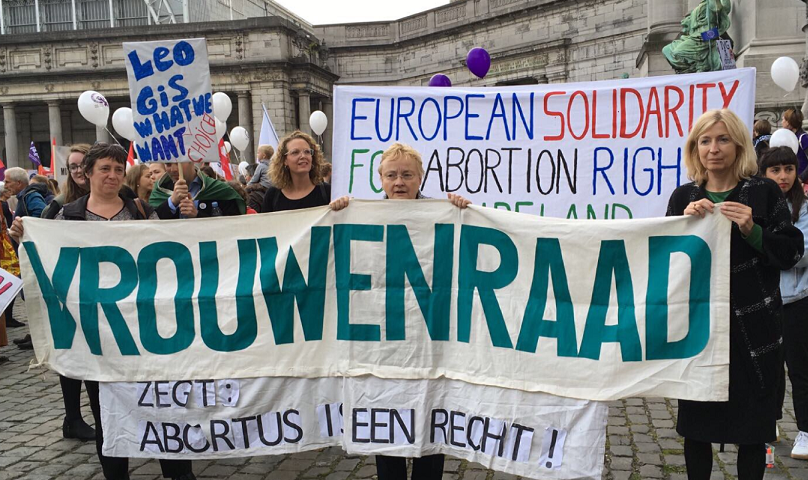 LEO
GiS
WHAT WE
WANT
CHOICE
EUROPEAN SOLIDARITY
FO ABORTION RIGH
IRELAND
VROUWENRAAD
ZEGT:
ABORTUS IS EEN RECHT!